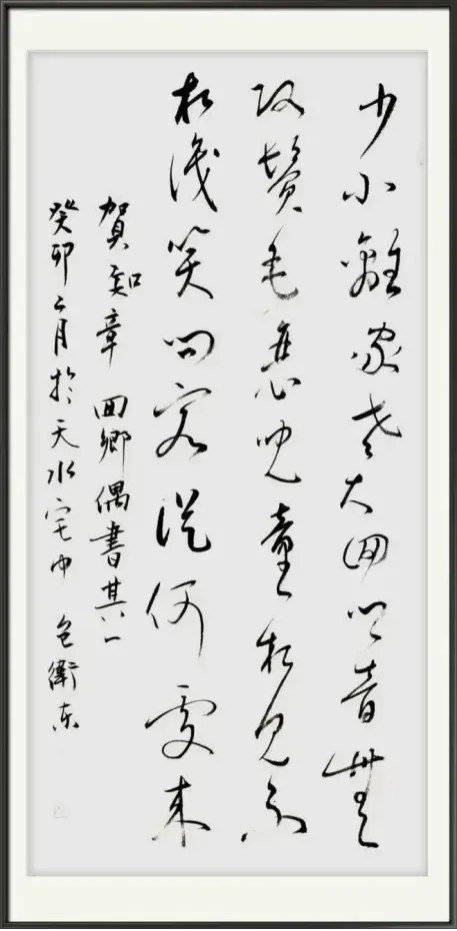 少小離家老大回鄉音無
改鬢毛衰兒童相見不
相識笑問客從何處來
賀知章 回鄉偶書其一
癸卯二月於天水宅中 包衛東